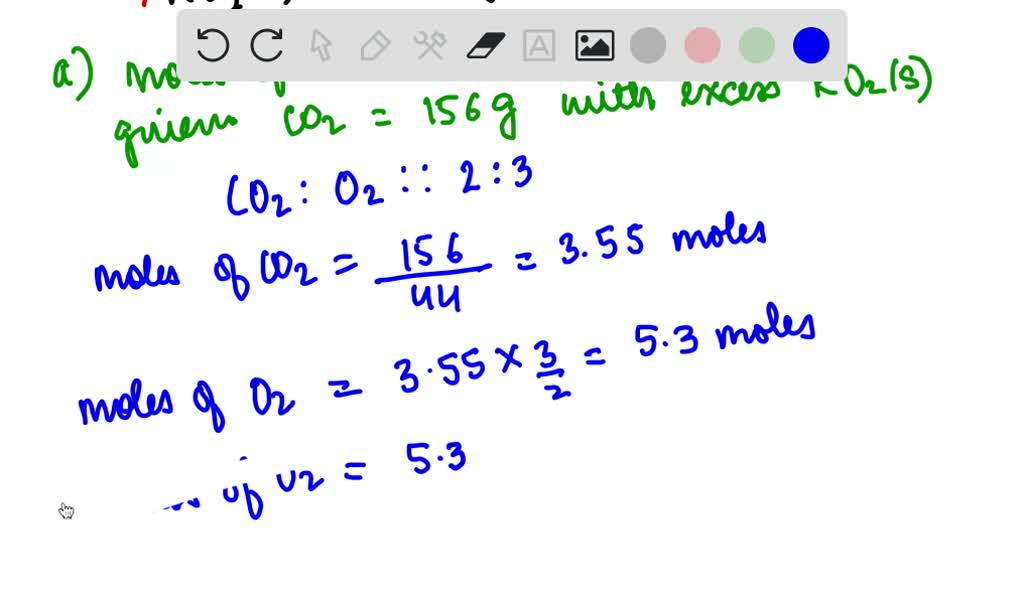 a)
given CO2 = 156g with excess KO2(s)
CO2 : O2 :: 2:3
moles of CO2 = 156/44 = 3.55 moles
moles of O2 = 3.55 × 3/2 = 5.3 moles
of = 5.3